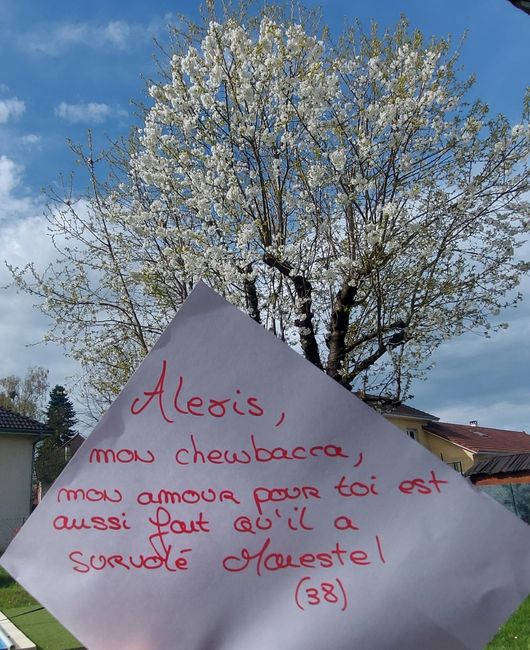 Alexis,
mon chewbacca,
mon amour pour toi est
aussi fort qu'il a
survolé Morestel
(38)